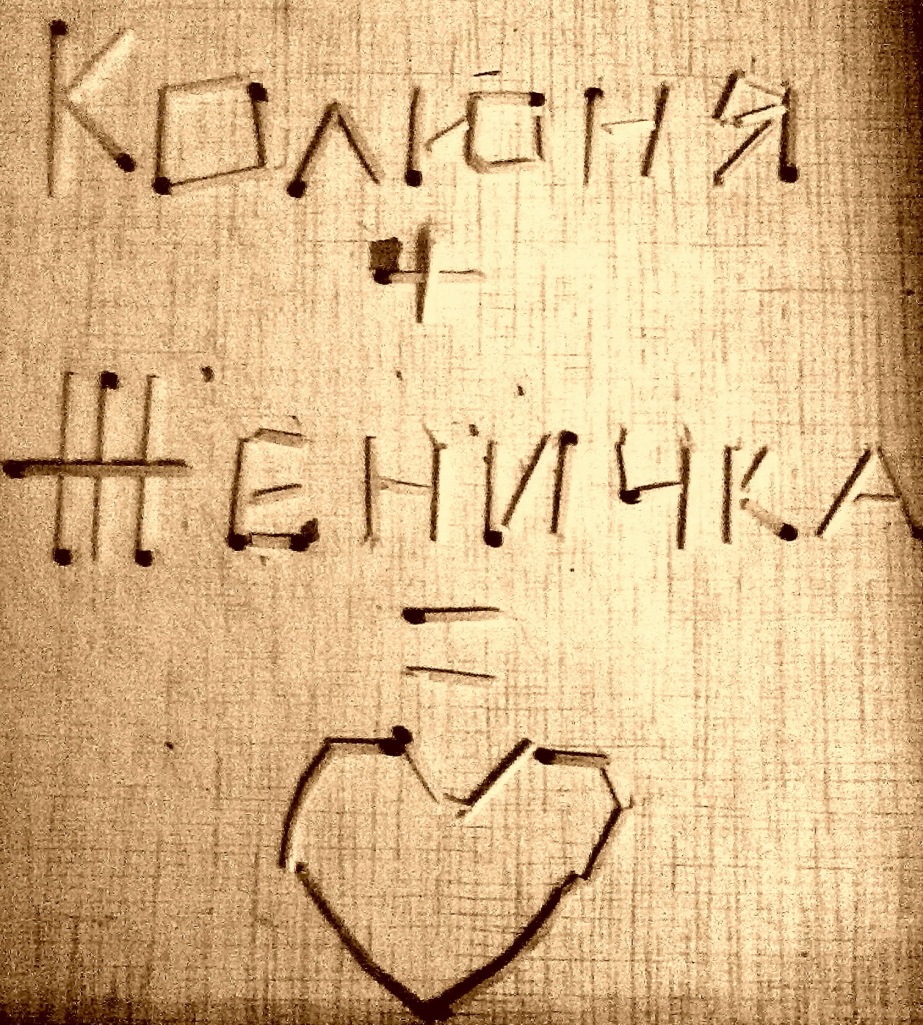 Колюня
+
Женичка
=